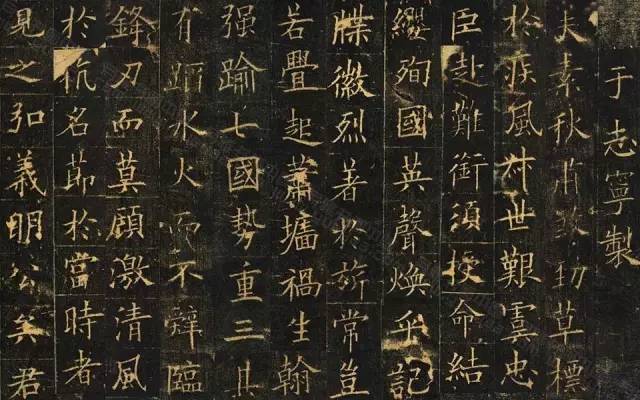 于志寧製
夫素秋肅煞勁草標
於疾風叔世艱虞忠
臣赴難銜須授命結
纓殉國英聲煥乎記
牒徽烈著於旂常豈
若舋起蕭墻禍生翰
强踰七國勢重三其
有蹈水火而不辭臨
鋒刃而莫顧激清風
於抗名節於當時者
見之弘義明公矣君